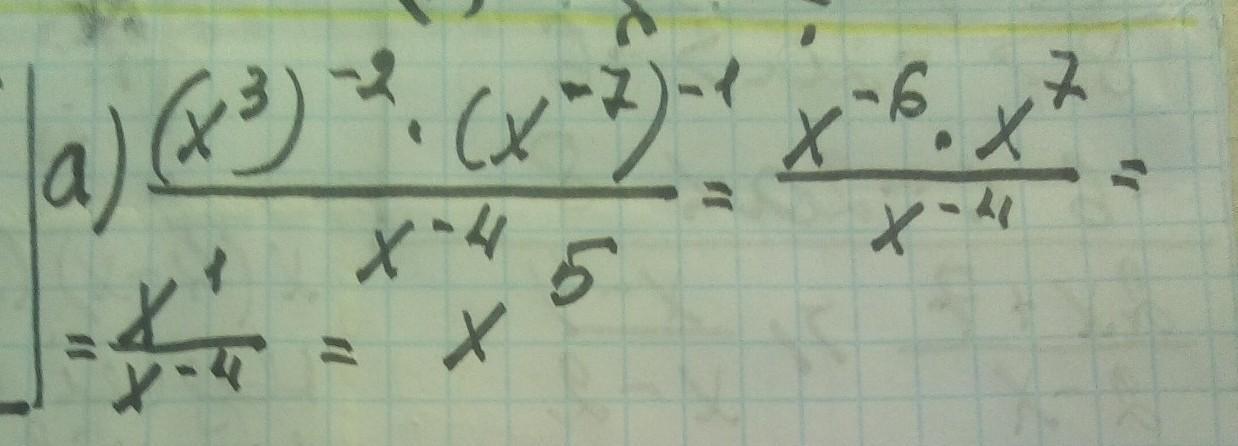 a) \frac{(x^3)^{-2} \cdot (x^{-7})^{-1}}{x^{-4}} = \frac{x^{-6} \cdot x^7}{x^{-4}} =
= \frac{x^1}{x^{-4}} = x^5